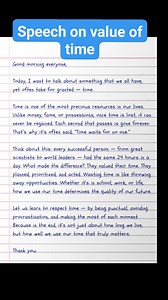 Speech on value of
time
Good morning everyone,
Today, I want to talk about something that we all have,
yet often take for granted — time.
Time is one of the most precious resources in our lives.
Unlike money, fame, or possessions, once time is lost, it can
never be regained. Each second that passes is gone forever.
That's why it's often said, "Time waits for no one."
Think about this: every successful person — from great
scientists to world leaders — had the same 24 hours in a
day. What made the difference? They valued their time. They
planned, prioritized, and acted. Wasting time is like throwing
away opportunities. Whether it's in school, work, or life,
how we use our time determines the quality of our future.
Let us learn to respect time — by being punctual, avoiding
procrastination, and making the most of each moment.
Because in the end, it's not just about how long we live,
but how well we use our time that truly matters.
Thank you.